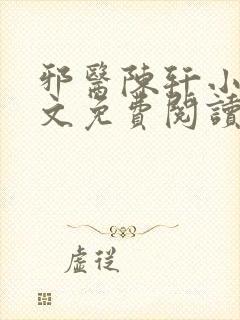 邪醫陳軒小
文免費閱讀
虛從